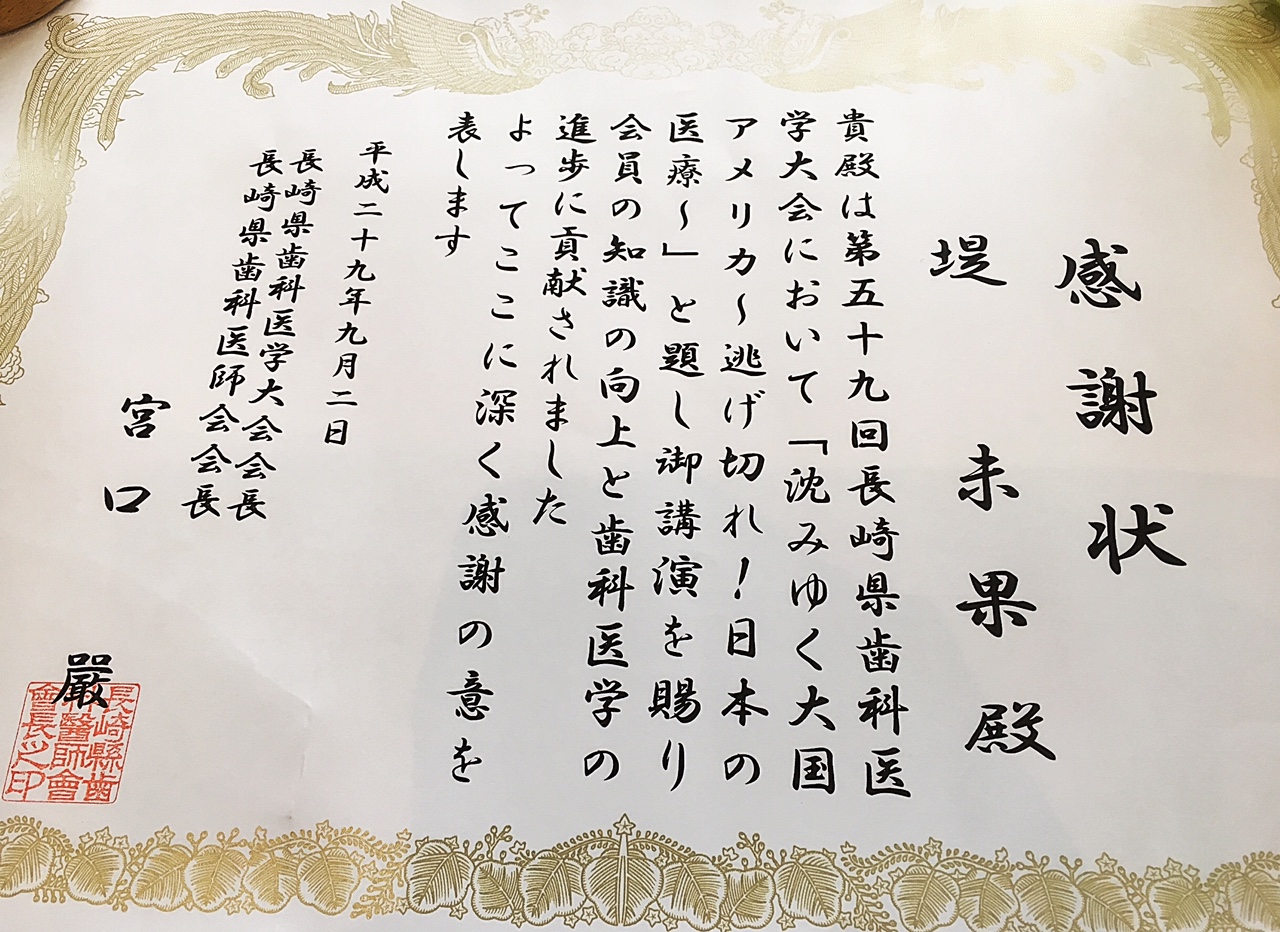 感謝状
堤 未果 殿
貴殿は第五十九回長崎県歯科医
学大会において「沈みゆく大国
アメリカ〜逃げ切れ!日本の
医療〜」と題し御講演を賜り
会員の知識の向上と歯科医学の
進歩に貢献されました
よってここに深く感謝の意を
表します
平成二十九年九月二日
長崎県歯科医学大会会長
長崎県歯科医師会会長
宮口 嚴
長崎縣歯
科醫師會
會長之印